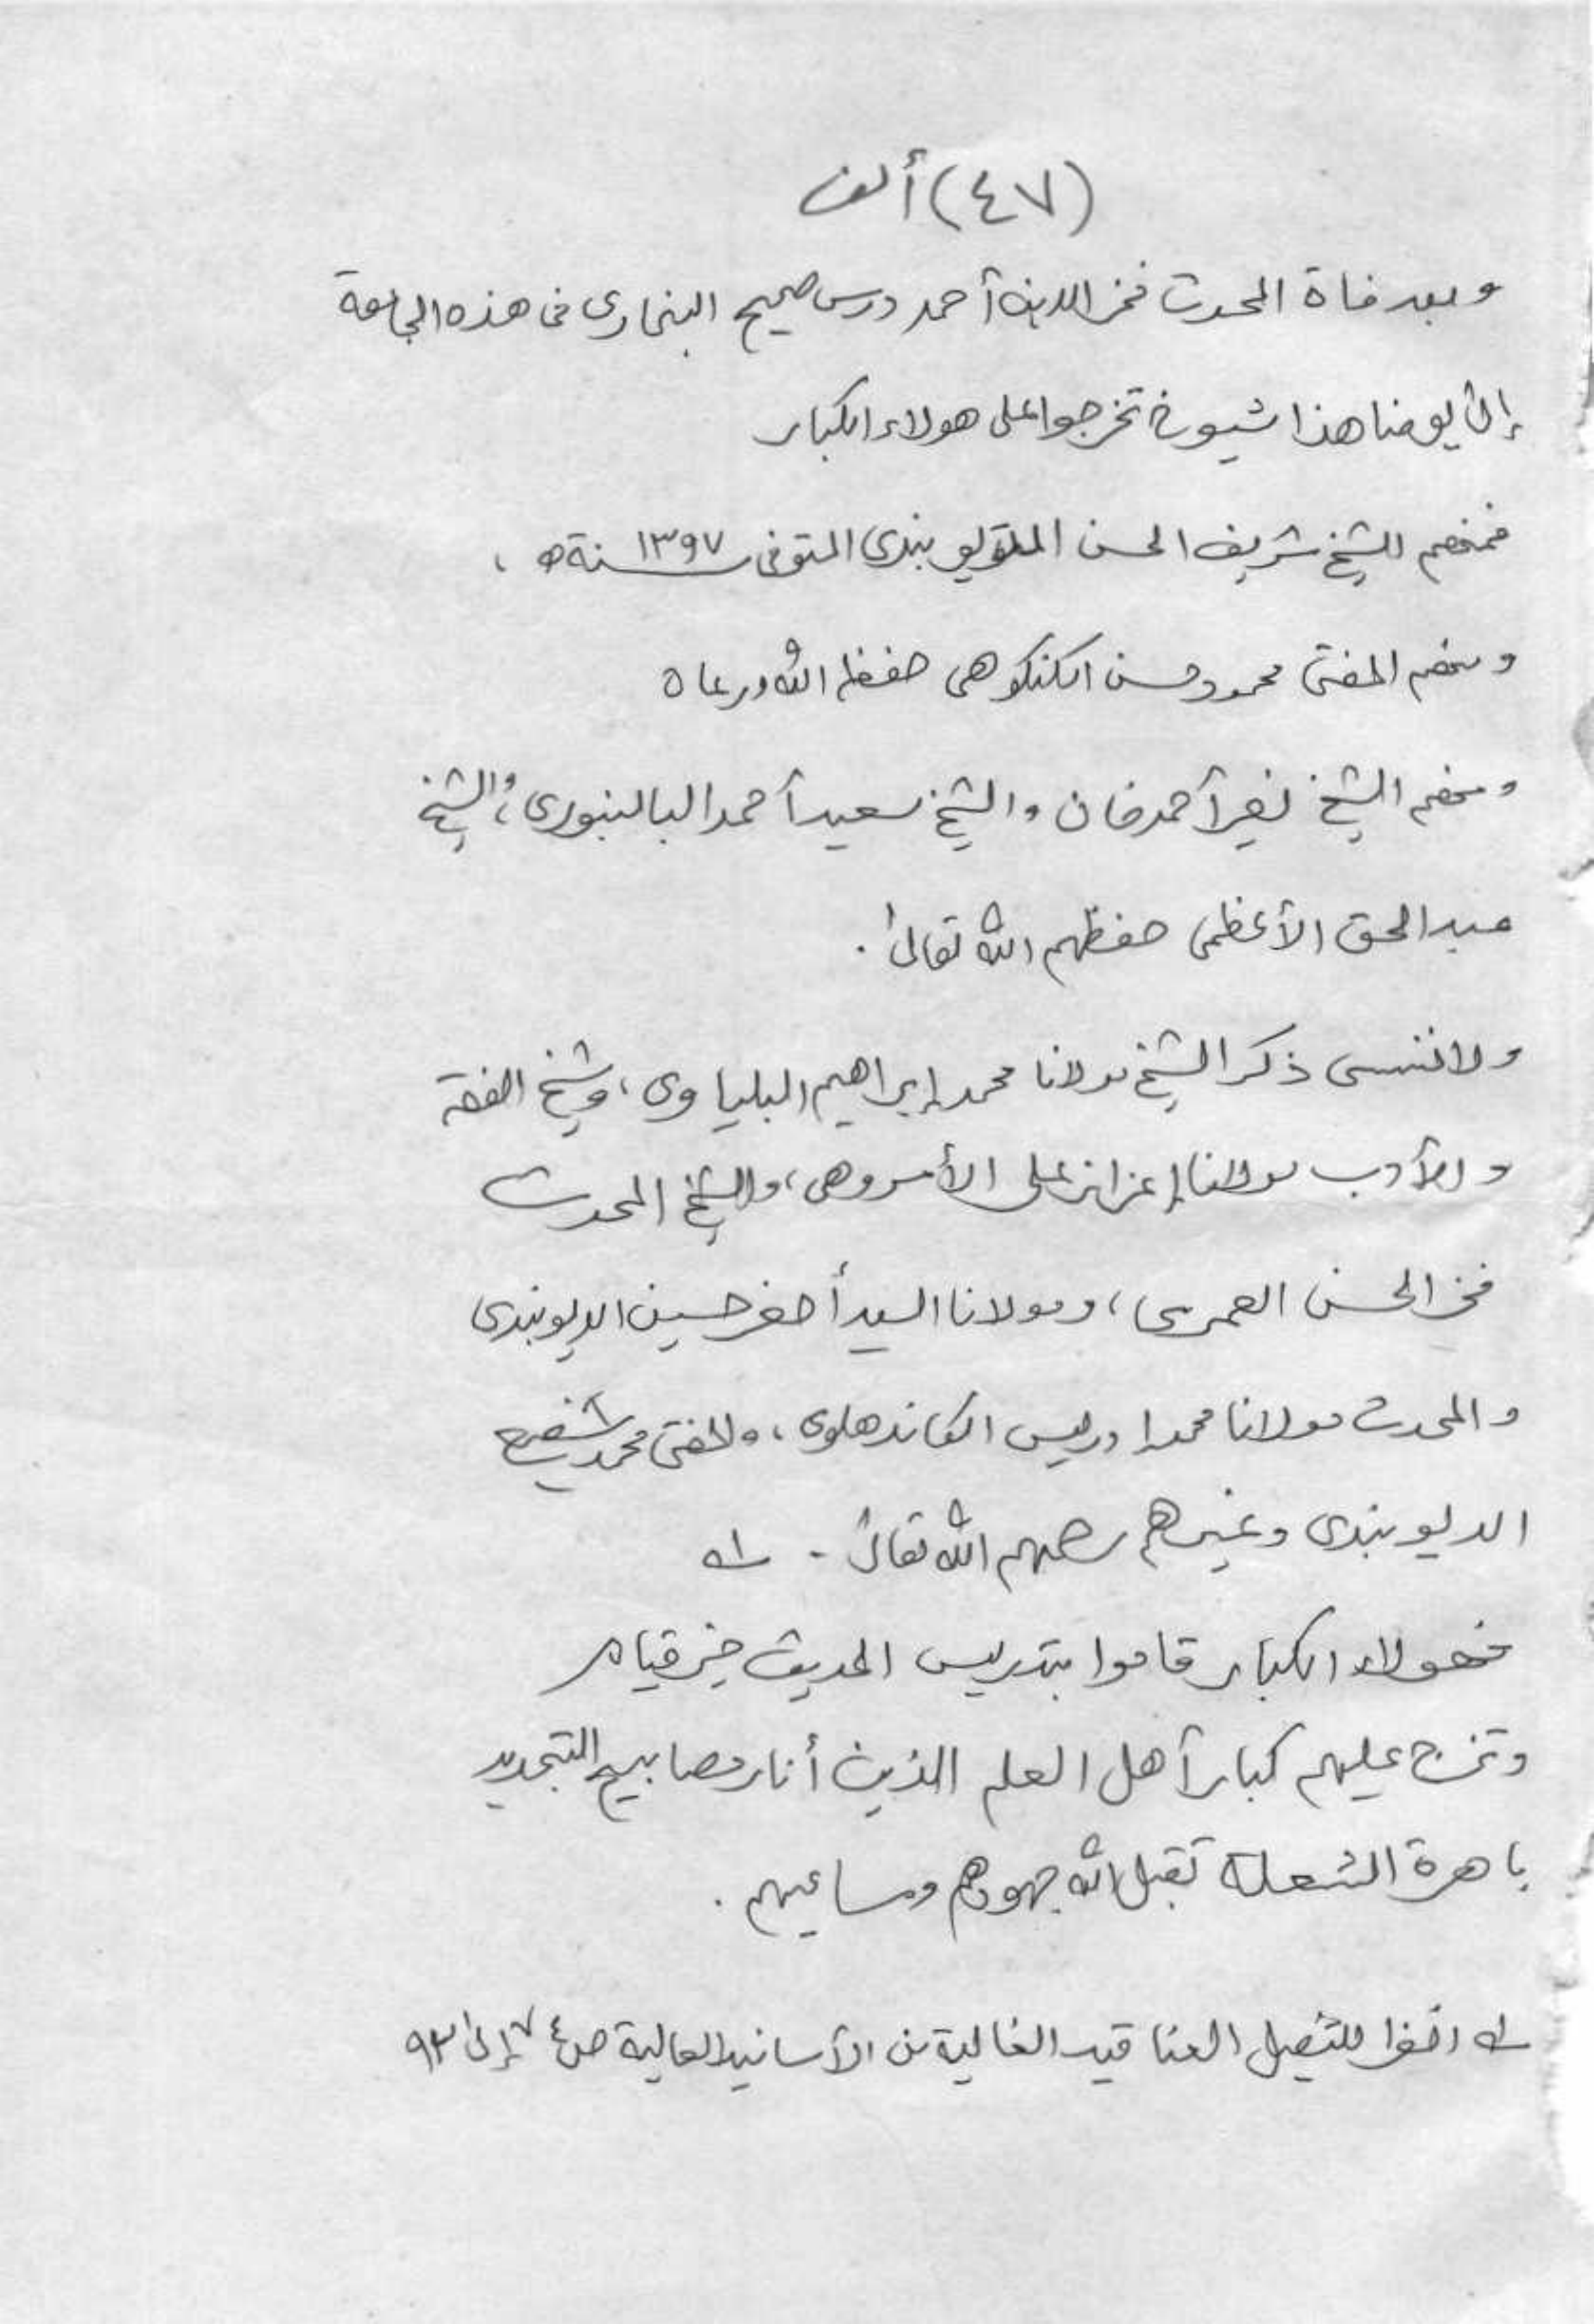 (٤٧) ألف
وبعد فاة المحدث فخر الدين أحمد درس صحيح البخاري في هذه الجامعة
إلى يومنا هذا شيوخ تخرجوا على هولاء الكبار
فمنهم الشيخ شريف الحسن الديوبندي المتوفى سنة ١٣٩٧ه ،
ومنهم المفتي محمود حسن الكنكوهي حفظه الله ورعاه
ومنهم الشيخ نصير أحمد خان والشيخ سعيد أحمد البالنبوري، والشيخ
عبد الحق الأعظمي حفظهم الله تعالى .
ولا ننسى ذكر الشيخ مولانا محمد إبراهيم البلياوي، وشيخ الفقه
والأدب مولانا إعزاز على الأمروهي، والشيخ المحدث
فخر الحسن العمري، ومولانا السيد أصغر حسين الديوبندي
والمحدث مولانا محمد ادريس الكاندهلوي، والمفتي محمد شفيع
الديوبندي وغيرهم رحمهم الله تعالى - له
فهولاء الكبار قاموا بتدريس الحديث خير قيام
وتخرج عليهم كبار أهل العلم الذين أنار مصابيح التجديد
باهرة الشعلة تقبل الله جهودهم ومساعيهم .
له انظر للتفصيل العناقيد الغالية من الأسانيد العالية ص ٧٤ إلى ٩٣